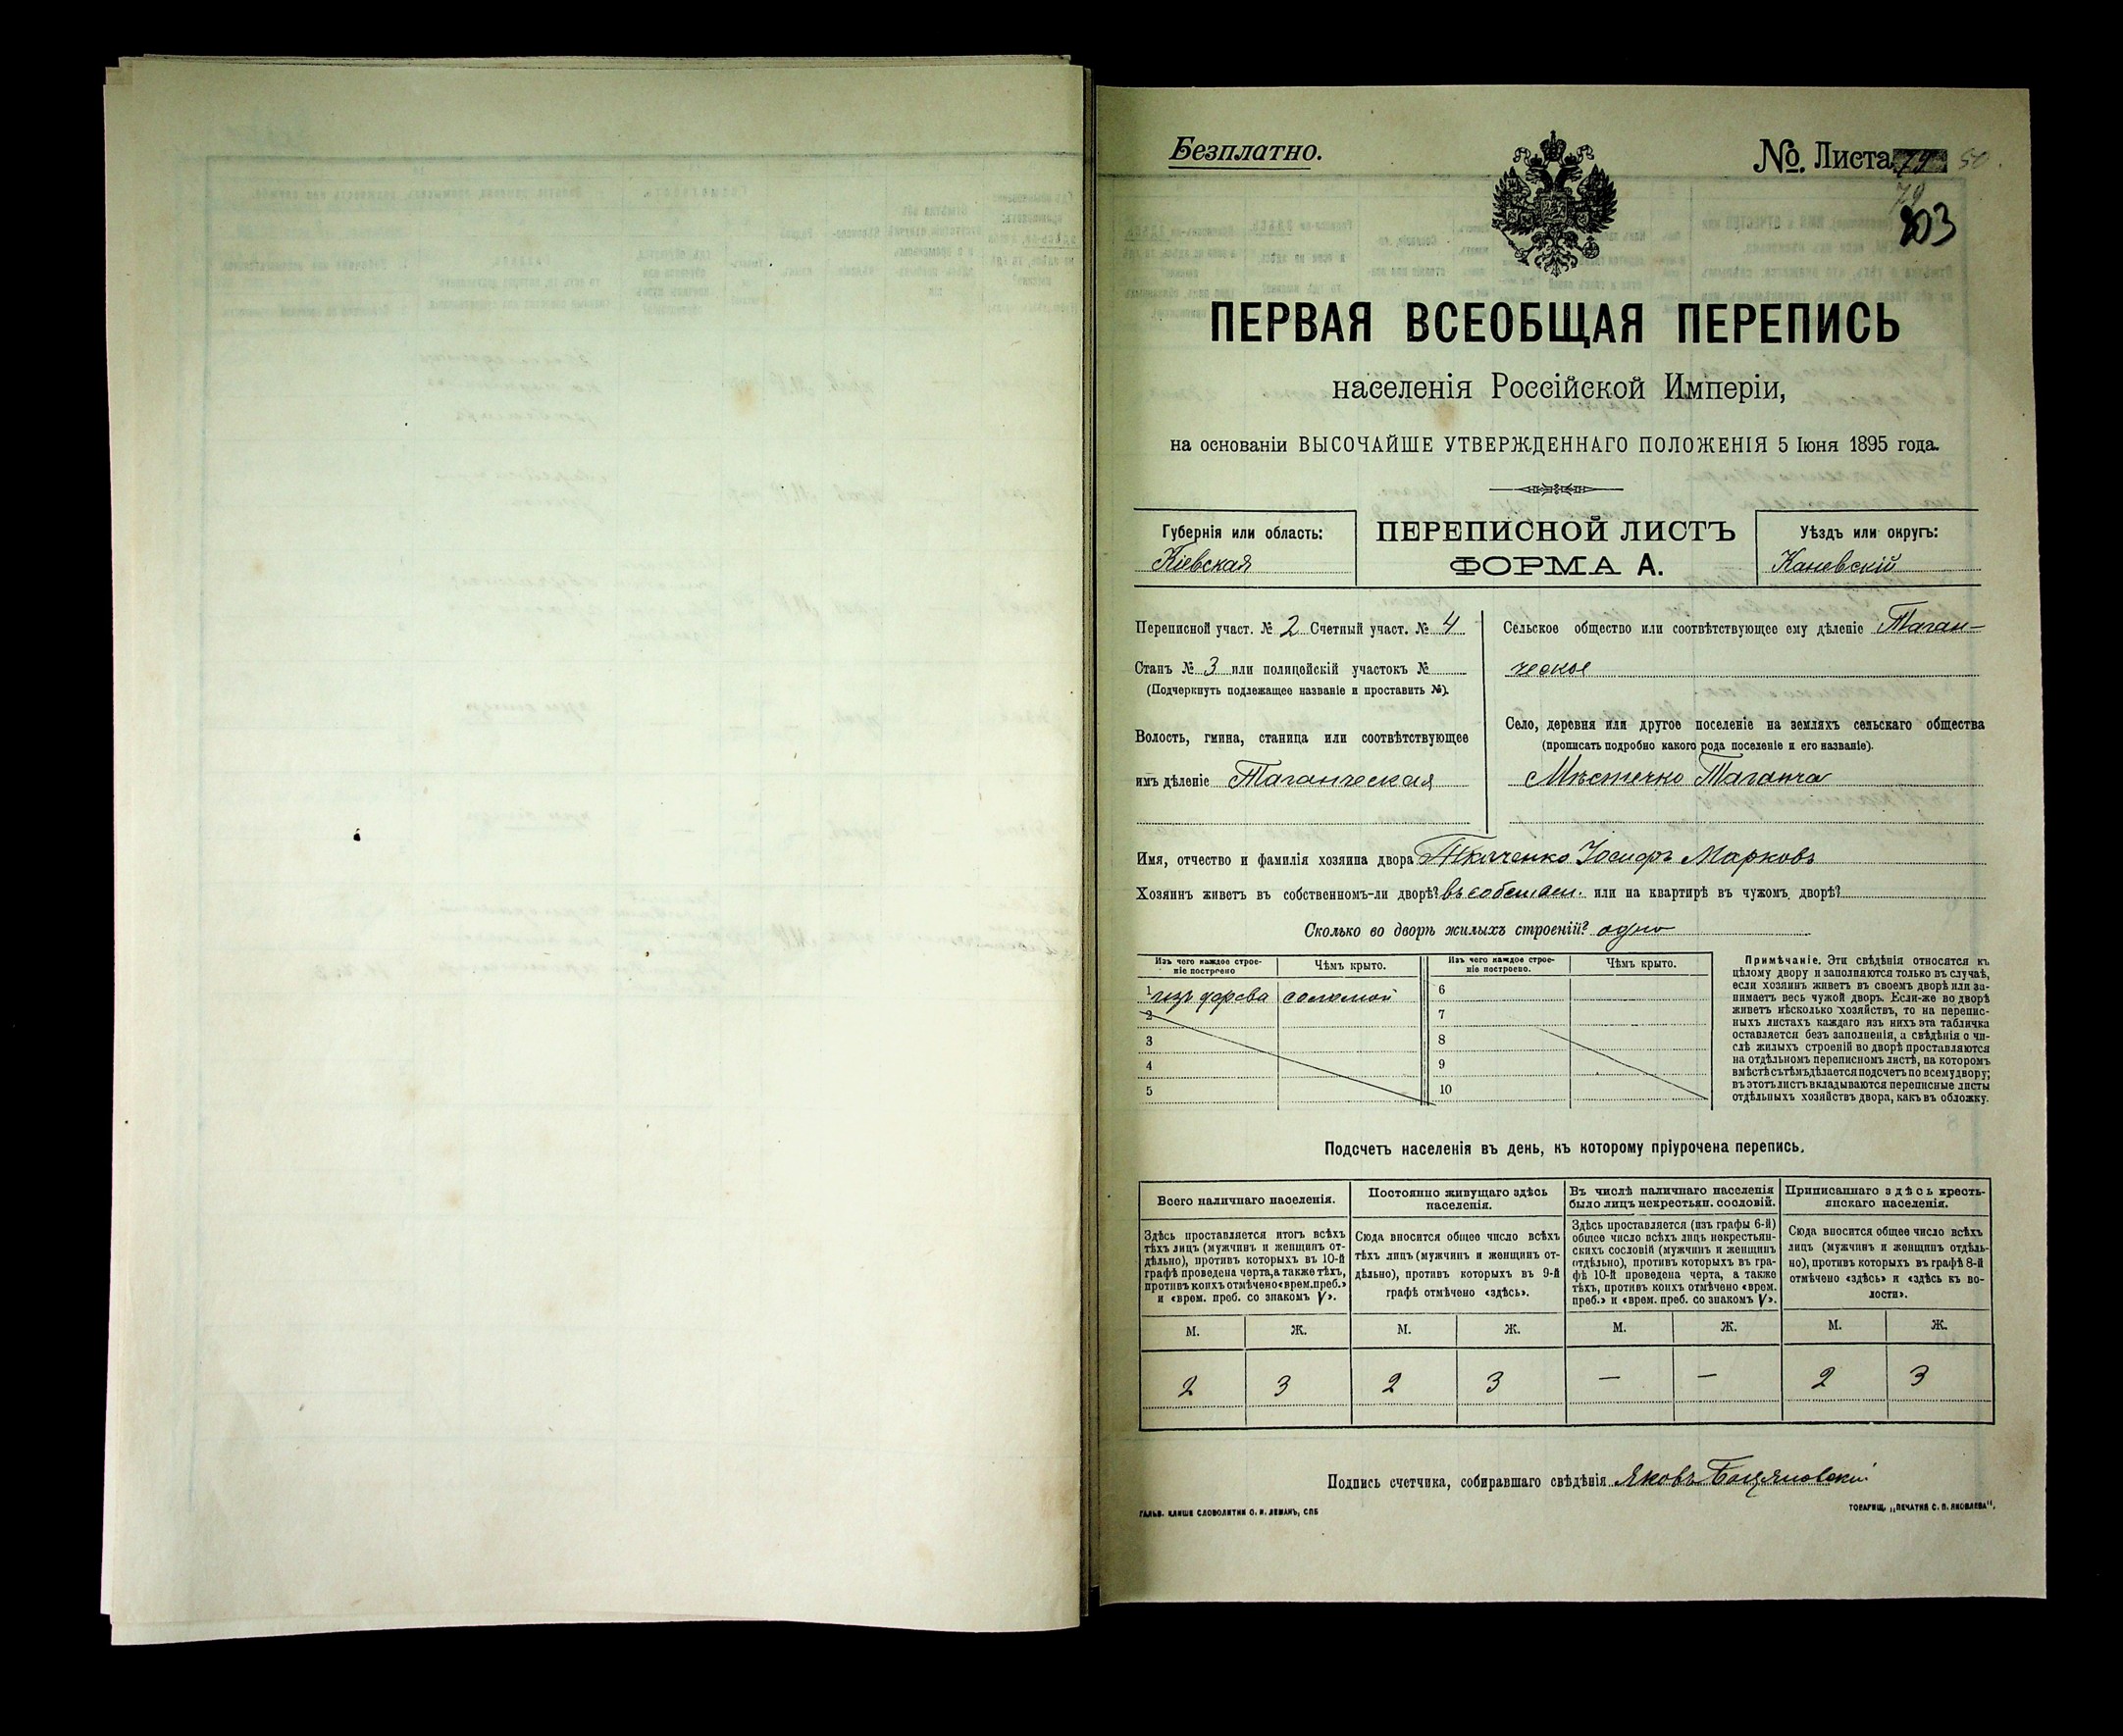 Безплатно.
№ Листа 79 50.
79
803
ПЕРВАЯ ВСЕОБЩАЯ ПЕРЕПИСЬ
населенія Россійской Имперіи,
на основаніи ВЫСОЧАЙШЕ УТВЕРЖДЕННАГО ПОЛОЖЕНІЯ 5 Іюня 1895 года.
Губернія или область:
Кіевская
ПЕРЕПИСНОЙ ЛИСТЪ
ФОРМА А.
Уѣздъ или округъ:
Каневскій
Переписной участ. № 2 Счетный участ. № 4
Станъ № 3 или полицейскій участокъ №
(Подчеркнуть подлежащее названіе и проставить №).
Волость, гмина, станица или соотвѣтствующее
имъ дѣленіе Таганческая
Сельское общество или соотвѣтствующее ему дѣленіе Таган-
ческое
Село, деревня или другое поселеніе на земляхъ сельскаго общества
(прописать подробно какого рода поселеніе и его названіе).
Мѣстечко Таганча
Имя, отчество и фамилія хозяина двора Ткаченко Іосифъ Марковъ
Хозяинъ живетъ въ собственномъ-ли дворѣ? въ собствен. или на квартирѣ въ чужомъ дворѣ?
Сколько во дворѣ жилыхъ строеній? одно
Изъ чего каждое строе-
ніе построено
Чѣмъ крыто.
Изъ чего каждое строе-
ніе построено.
Чѣмъ крыто.
1 изъ дерева соломой 6
2 7
3 8
4 9
5 10
Примѣчаніе. Эти свѣдѣнія относятся къ
цѣлому двору и заполняются только въ случаѣ,
если хозяинъ живетъ въ своемъ дворѣ или за-
нимаетъ весь чужой дворъ. Если-же во дворѣ
живетъ нѣсколько хозяйствъ, то на перепис-
ныхъ листахъ каждаго изъ нихъ эта табличка
оставляется безъ заполненія, а свѣдѣнія о чи-
слѣ жилыхъ строеній во дворѣ проставляются
на отдѣльномъ переписномъ листѣ, на которомъ
вмѣстѣ съ тѣмъ дѣлается подсчетъ по всему двору;
въ этотъ листъ вкладываются переписные листы
отдѣльныхъ хозяйствъ двора, какъ въ обложку.
Подсчетъ населенія въ день, къ которому пріурочена перепись.
Всего наличнаго населенія.
Здѣсь проставляется итогъ всѣхъ
тѣхъ лицъ (мужчинъ и женщинъ от-
дѣльно), противъ которыхъ въ 10-й
графѣ проведена черта, а также тѣхъ,
противъ коихъ отмѣчено «врем. преб.»
и «врем. преб. со знакомъ V».
Постоянно живущаго здѣсь
населенія.
Сюда вносится общее число всѣхъ
тѣхъ лицъ (мужчинъ и женщинъ от-
дѣльно), противъ которыхъ въ 9-й
графѣ отмѣчено «здѣсь».
Въ числѣ наличнаго населенія
было лицъ некрестьян. сословій.
Здѣсь проставляется (изъ графы 6-й)
общее число всѣхъ лицъ некрестьян-
скихъ сословій (мужчинъ и женщинъ
отдѣльно), противъ которыхъ въ гра-
фѣ 10-й проведена черта, а также
тѣхъ, противъ коихъ отмѣчено «врем.
преб.» и «врем. преб. со знакомъ V».
Приписаннаго здѣсь кресть-
янскаго населенія.
Сюда вносится общее число всѣхъ
лицъ (мужчинъ и женщинъ отдѣль-
но), противъ которыхъ въ графѣ 8-й
отмѣчено «здѣсь» и «здѣсь къ во-
лости».
М. Ж. М. Ж. М. Ж. М. Ж.
2 3 2 3 — — 2 3
Подпись счетчика, собиравшаго свѣдѣнія Яковъ
ГАЛЬВ. КЛИШЕ СЛОВОЛИТНИ О. И. ЛЕМАНЪ, СПБ
ТОВАРИЩ. „ПЕЧАТНЯ С. П. ЯКОВЛЕВА".